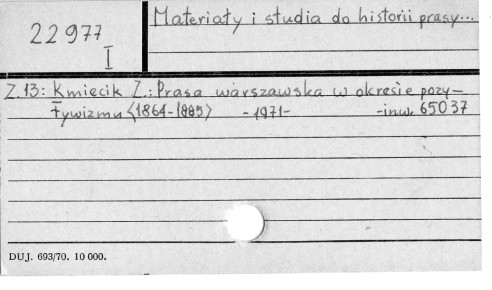 22977
I
Materiały i studia do historii prasy...
Z.13: Kmiecik Z.: Prasa warszawska w okresie pozy-
tywizmu <1864-1885> -1971- -inw. 65037
DUJ. 693/70. 10 000.